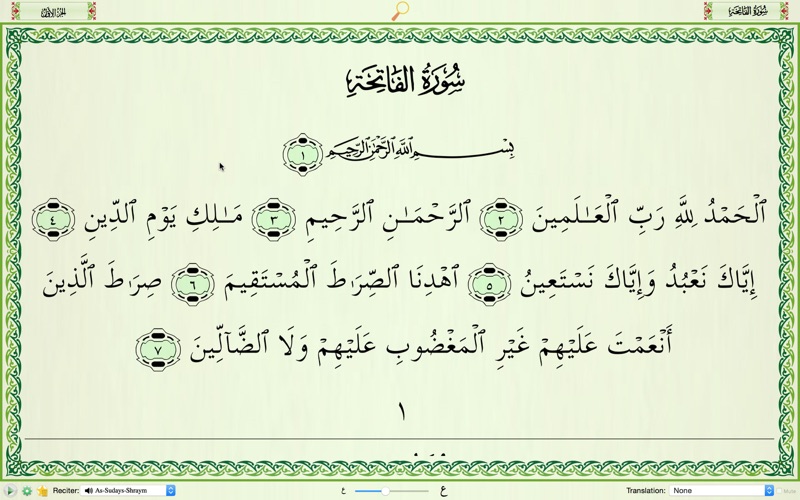 الجزء الأول
سُورَةُ الفَاتِحَةِ
سُورَةُ الفَاتِحَةِ
بِسْمِ ٱللَّهِ ٱلرَّحْمَٰنِ ٱلرَّحِيمِ ١
ٱلْحَمْدُ لِلَّهِ رَبِّ ٱلْعَـٰلَمِينَ ٢ ٱلرَّحْمَـٰنِ ٱلرَّحِيمِ ٣ مَـٰلِكِ يَوْمِ ٱلدِّينِ ٤
إِيَّاكَ نَعْبُدُ وَإِيَّاكَ نَسْتَعِينُ ٥ ٱهْدِنَا ٱلصِّرَٰطَ ٱلْمُسْتَقِيمَ ٦ صِرَٰطَ ٱلَّذِينَ
أَنْعَمْتَ عَلَيْهِمْ غَيْرِ ٱلْمَغْضُوبِ عَلَيْهِمْ وَلَا ٱلضَّآلِّينَ ٧
١
Reciter: As-Sudays-Shraym ع ع Translation: None Mute